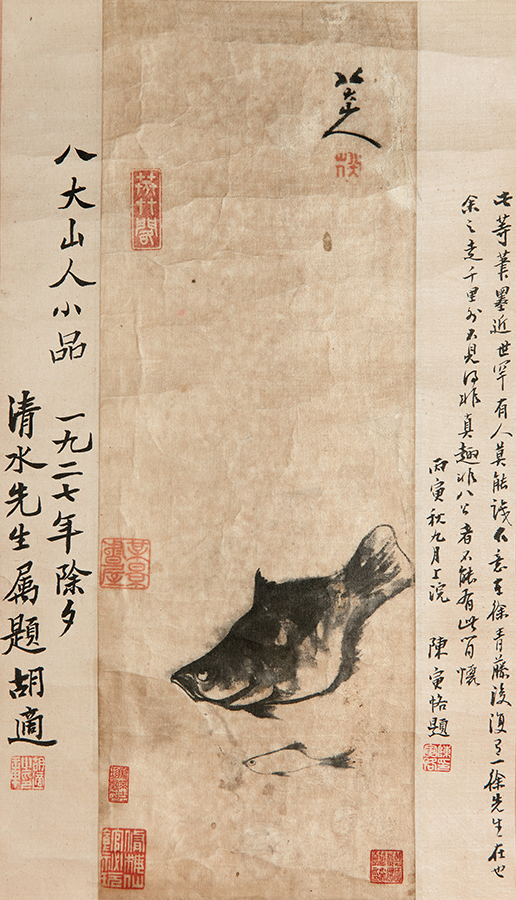 此等笔墨近世罕有人莫能識不意至徐青藤後復有一徐先生在也
余之走千里外不見得非真趣非八公者不能有此胷懷
丙寅秋九月上浣 陳寅恪題
八大山人
荻竹閣
八大山人小品
一九二七年除夕
清水先生属題 胡適